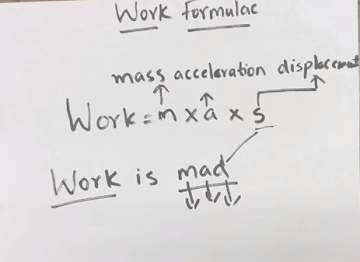 Work Formulae
mass acceleration displacement
Work = m x a x s
Work is mad